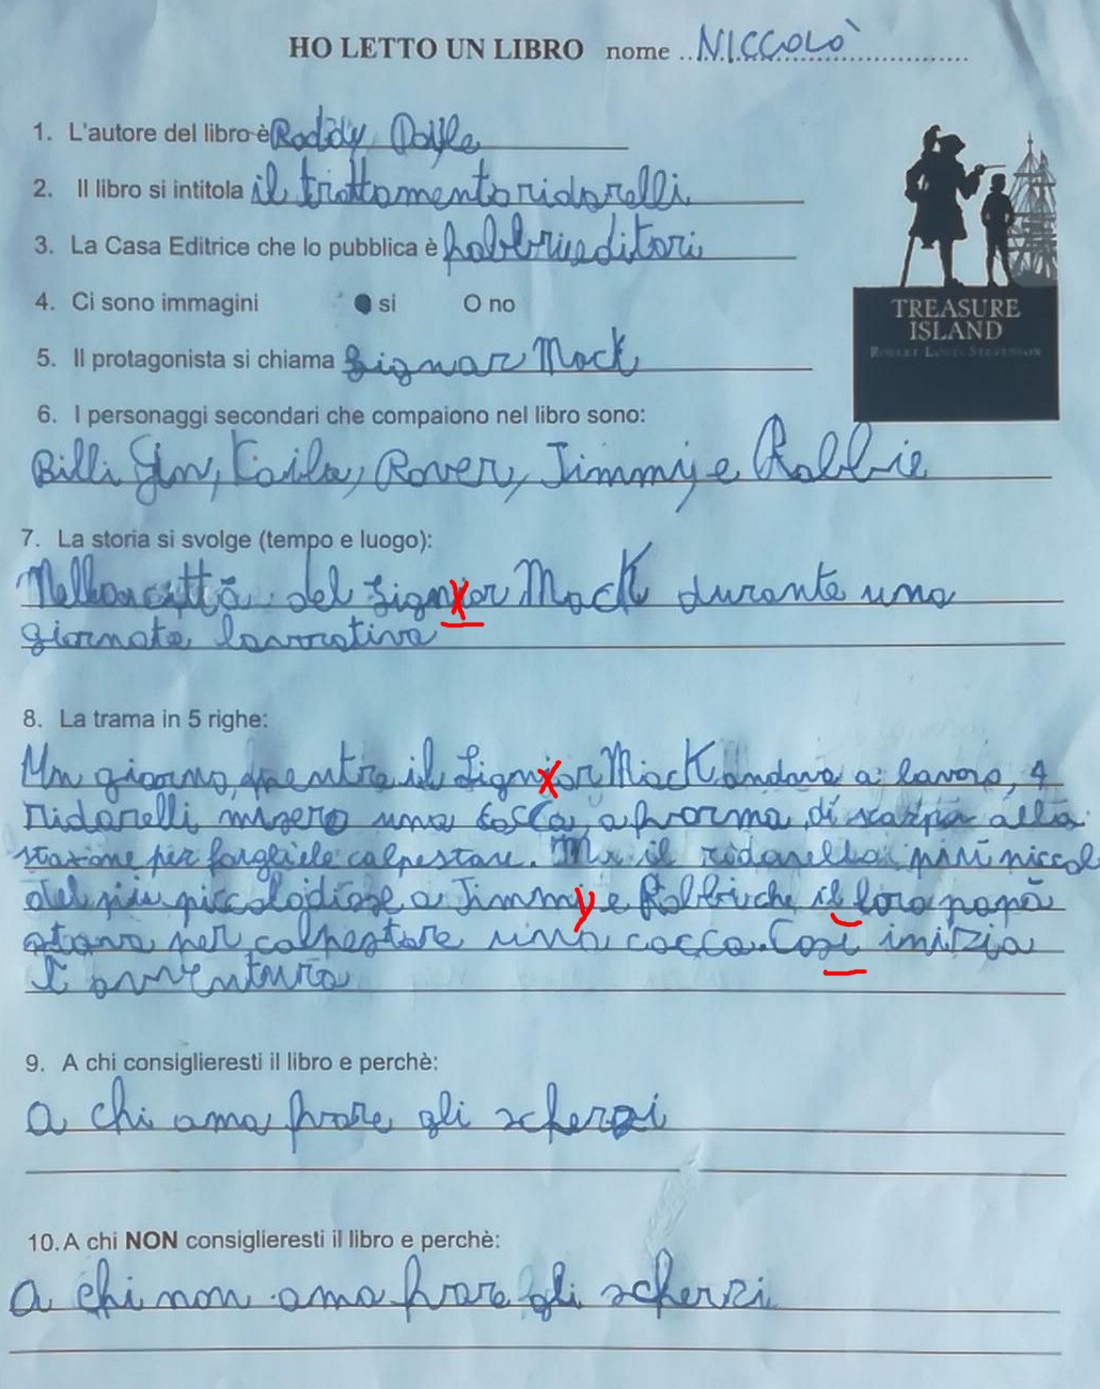 HO LETTO UN LIBRO nome NICCOLÒ
1. L'autore del libro è Roddy Doyle
2. Il libro si intitola il trattamento ridarelli
3. La Casa Editrice che lo pubblica è fabbri editori
4. Ci sono immagini si O no
TREASURE
ISLAND
ROBERT LOUIS STEVENSON
5. Il protagonista si chiama Signor Mack
6. I personaggi secondari che compaiono nel libro sono:
Billi Gin, Kaila, Rover, Jimmy e Robbie
7. La storia si svolge (tempo e luogo):
Nella città del Signior Mack durante una
giornata lavorativa
8. La trama in 5 righe:
Un giorno, mentre il Signior Mack andava a lavoro, 4
ridarelli misero una cocca, a forma di scarpa alla
stazione per fargliele calpestare. Ma il ridarello più piccol
del più piccolo disse a Jimmy e Robbi che il loro papà
stava per calpestare una cacca. Così inizia
l'avventura
9. A chi consiglieresti il libro e perchè:
a chi ama fare gli scherzi
10. A chi NON consiglieresti il libro e perchè:
a chi non ama fare gli scherzi